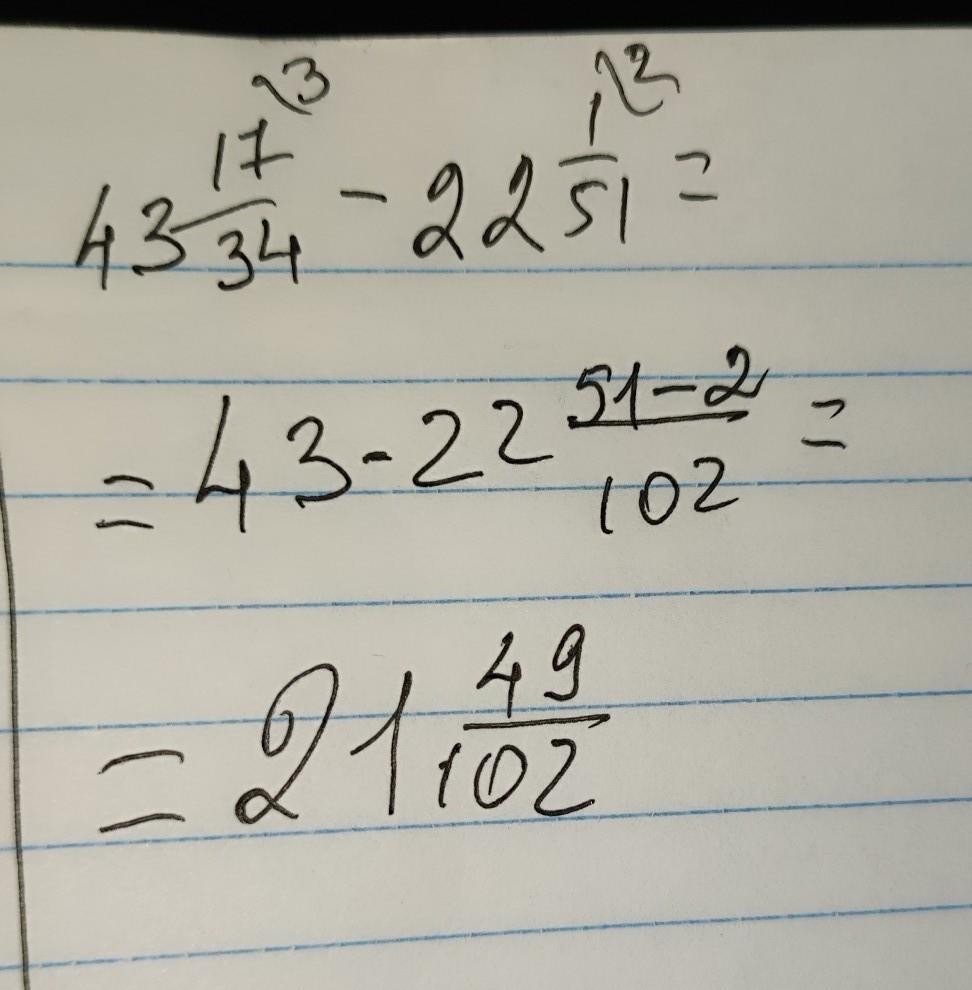 43 17/34 ⟍3 - 22 1/51 ⟍2 =
= 43 - 22 51-2/102 =
= 21 49/102